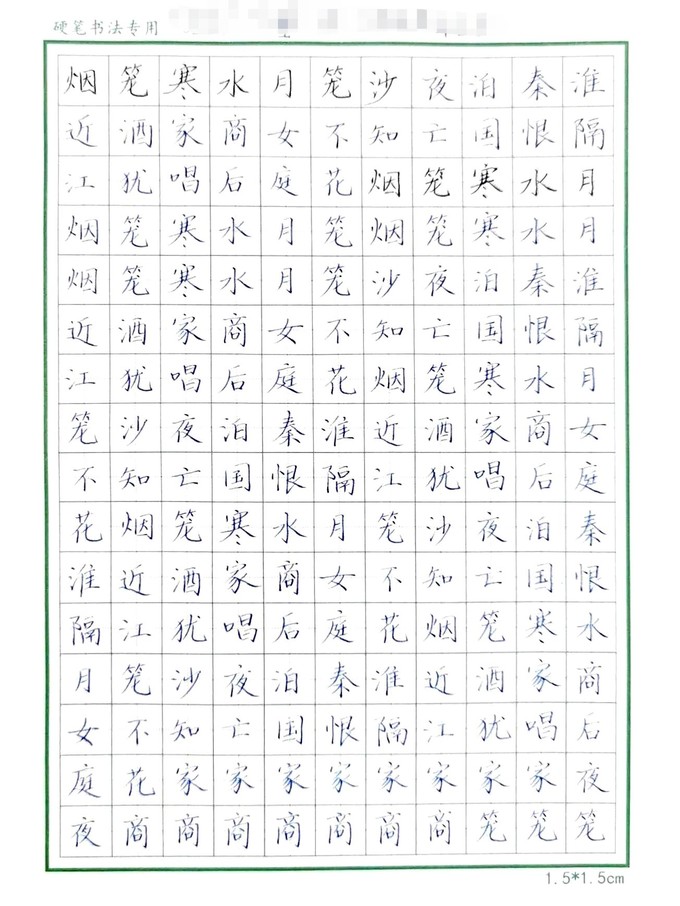 硬笔书法专用
烟笼寒水月笼沙夜泊秦淮
近酒家商女不知亡国恨隔
江犹唱后庭花烟笼寒水月
烟笼寒水月笼烟笼寒水月
烟笼寒水月笼沙夜泊秦淮
近酒家商女不知亡国恨隔
江犹唱后庭花烟笼寒水月
笼沙夜泊秦淮近酒家商女
不知亡国恨隔江犹唱后庭
花烟笼寒水月笼沙夜泊秦
淮近酒家商女不知亡国恨
隔江犹唱后庭花烟笼寒水
月笼沙夜泊秦淮近酒家商
女不知亡国恨隔江犹唱后
庭花家家家家家家家家夜
夜商商商商商商商笼笼笼
1.5*1.5cm